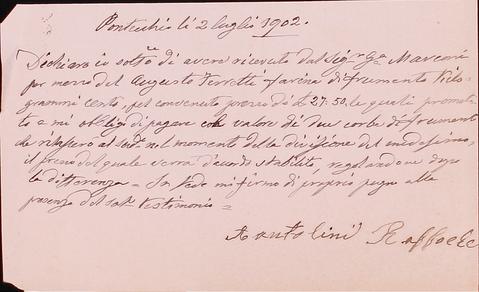 Pontecchio lì 2 luglio 1902.
Dichiaro io sottotto di avere ricevuto dal Sigr Ga Marconi
per mezzo del Augusto Ferretti farina di frumento Kilo-
grammi cento, pel convenuto prezzo di £ 27.50, le quali prometto
e mi obbligo di pagare col valore di due corbe di frumento
che rilascerò al sudo nel momento della divisione del medesimo,
il prezzo del quale verrà d'accordo stabilito, regolandone dopo
la differenza = In fede mi firmo di proprio pugno alla
presenza del sotto testimonio =
Raffaele